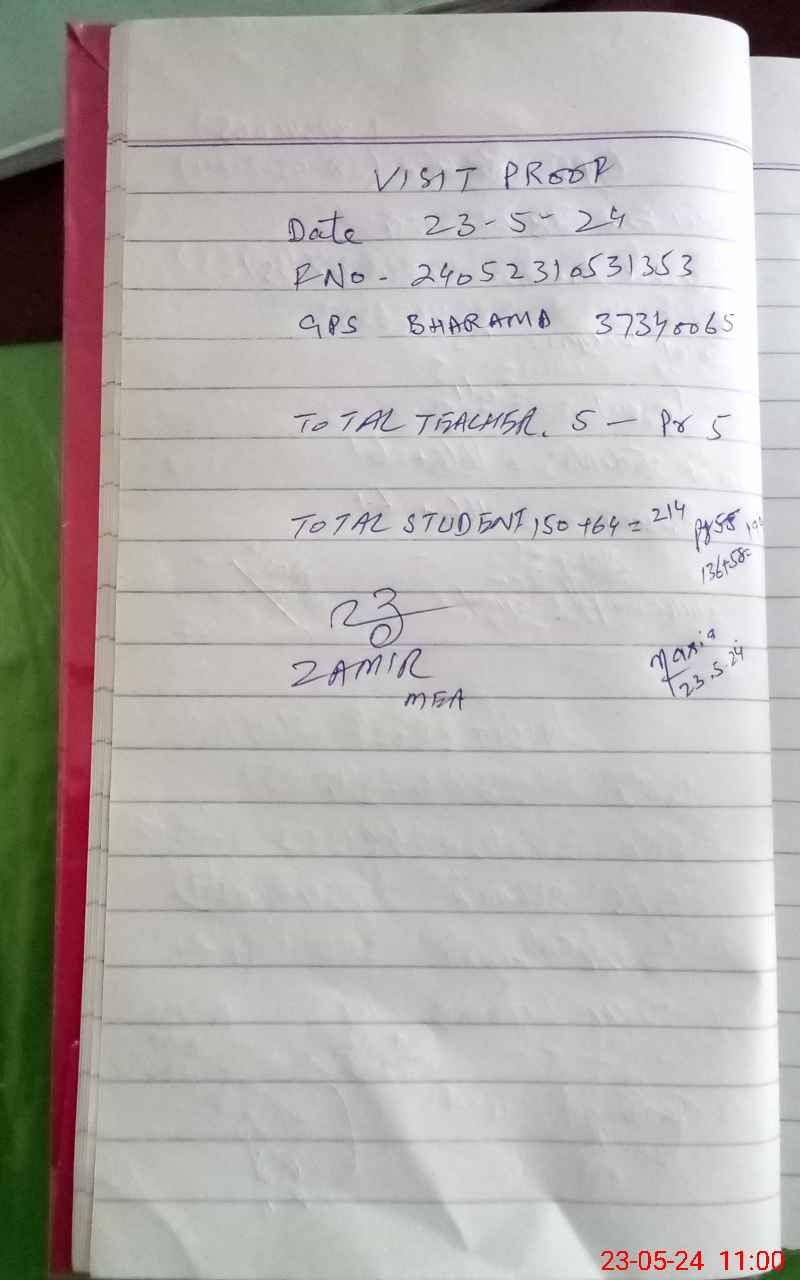 VISIT PROOF
Date 23-5-24
RNo- 24052310531353
GPS BHARAMA 37340065
TOTAL TEACHER. 5 — Pr 5
TOTAL STUDENT, 150+64=214
136+58=
ZAMIR
MEA
23.5.24
23-05-24 11:00